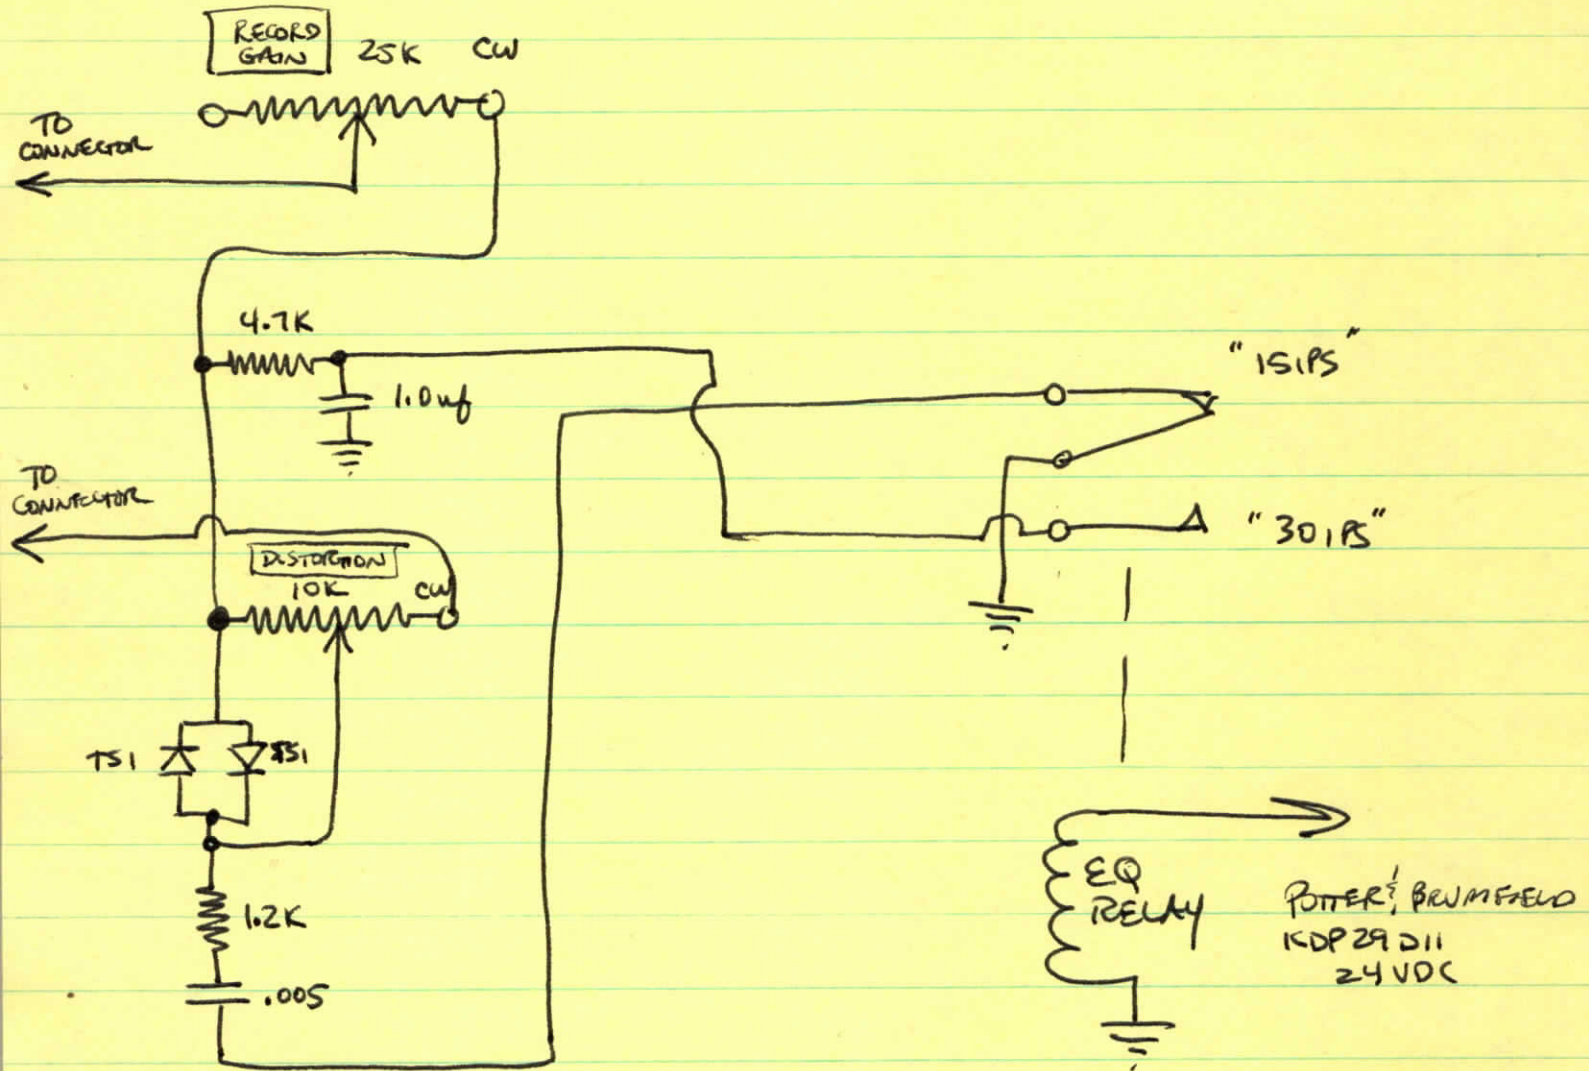 RECORD
GAIN
25K CW
TO
CONNECTOR
4.7K
1.0uf
"15IPS"
TO
CONNECTOR
"30IPS"
DISTORTION
10K CW
TS1
1.2K
.005
EQ
RELAY
POTTER & BRUMFIELD
KDP29D11
24VDC